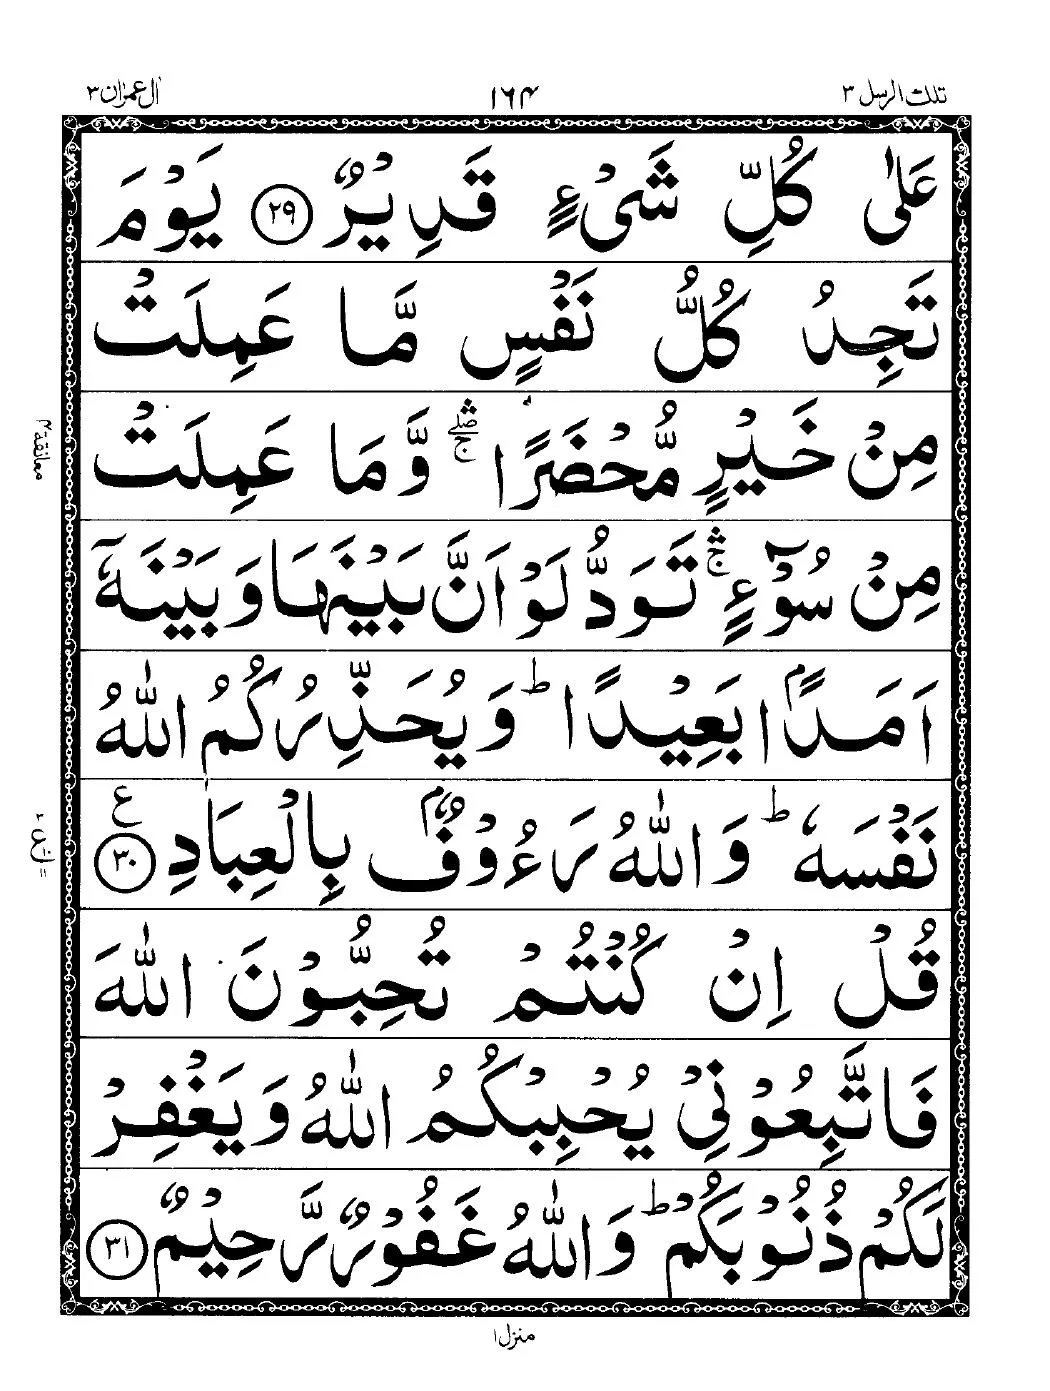 تلك الرسل ٣
١٦٤
اٰل عمرٰن ٣
عَلٰى كُلِّ شَىْءٍ قَدِيْرٌ ﴿٢٩﴾ يَوْمَ
تَجِدُ كُلُّ نَفْسٍ مَّا عَمِلَتْ
مِنْ خَيْرٍ مُّحْضَرًا ۛۖۚ وَّمَا عَمِلَتْ
معانقة ٣
مِنْ سُوْٓءٍ ۛۚ تَوَدُّ لَوْ اَنَّ بَيْنَهَا وَبَيْنَهٗۤ
اَمَدًۢا بَعِيْدًا ؕ وَيُحَذِّرُكُمُ اللّٰهُ
نَفْسَهٗ ؕ وَاللّٰهُ رَءُوْفٌۢ بِالْعِبَادِ ﴿٣٠﴾ ع
قُلْ اِنْ كُنْتُمْ تُحِبُّوْنَ اللّٰهَ
فَاتَّبِعُوْنِىْ يُحْبِبْكُمُ اللّٰهُ وَيَغْفِرْ
لَكُمْ ذُنُوْبَكُمْ ؕ وَاللّٰهُ غَفُوْرٌ رَّحِيْمٌ ﴿٣١﴾
منزل ١